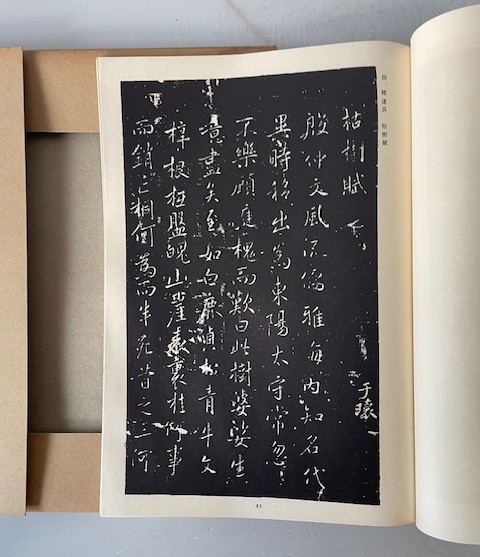 四、褚遂良 枯樹賦
枯樹賦
殷仲文風流儒雅海内知名代
異時移出為東陽大守常忽〻
不樂顧庭槐而歎曰此樹婆娑生
意盡矣至如白鹿貞松青牛文
梓根柢盤魄山崖表裏桂何事
而銷亡桐何為而半死昔之三河